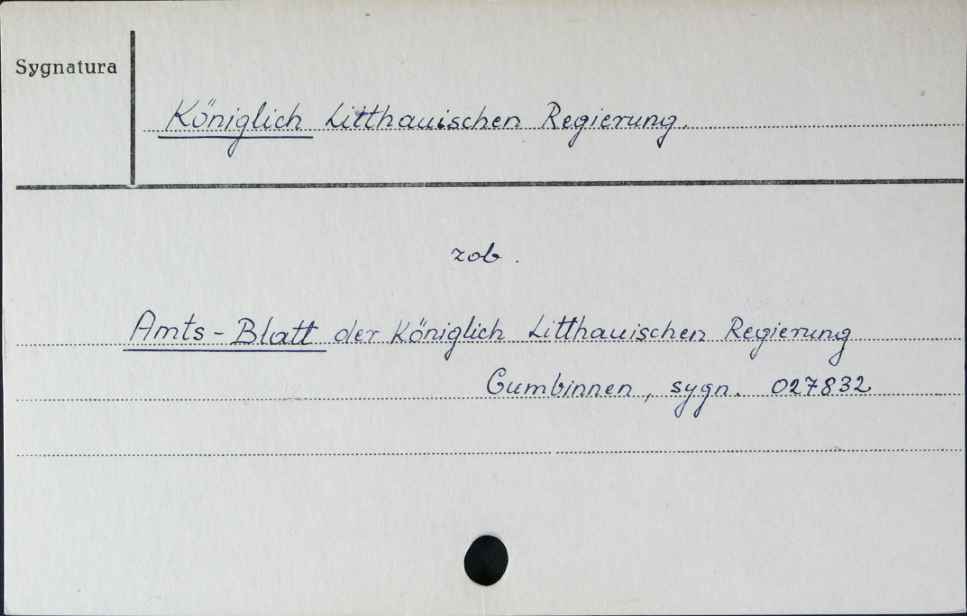 Sygnatura
Königlich Litthauischen Regierung.
zob.
Amts-Blatt der Königlich Litthauischen Regierung
Gumbinnen, sygn. 027832